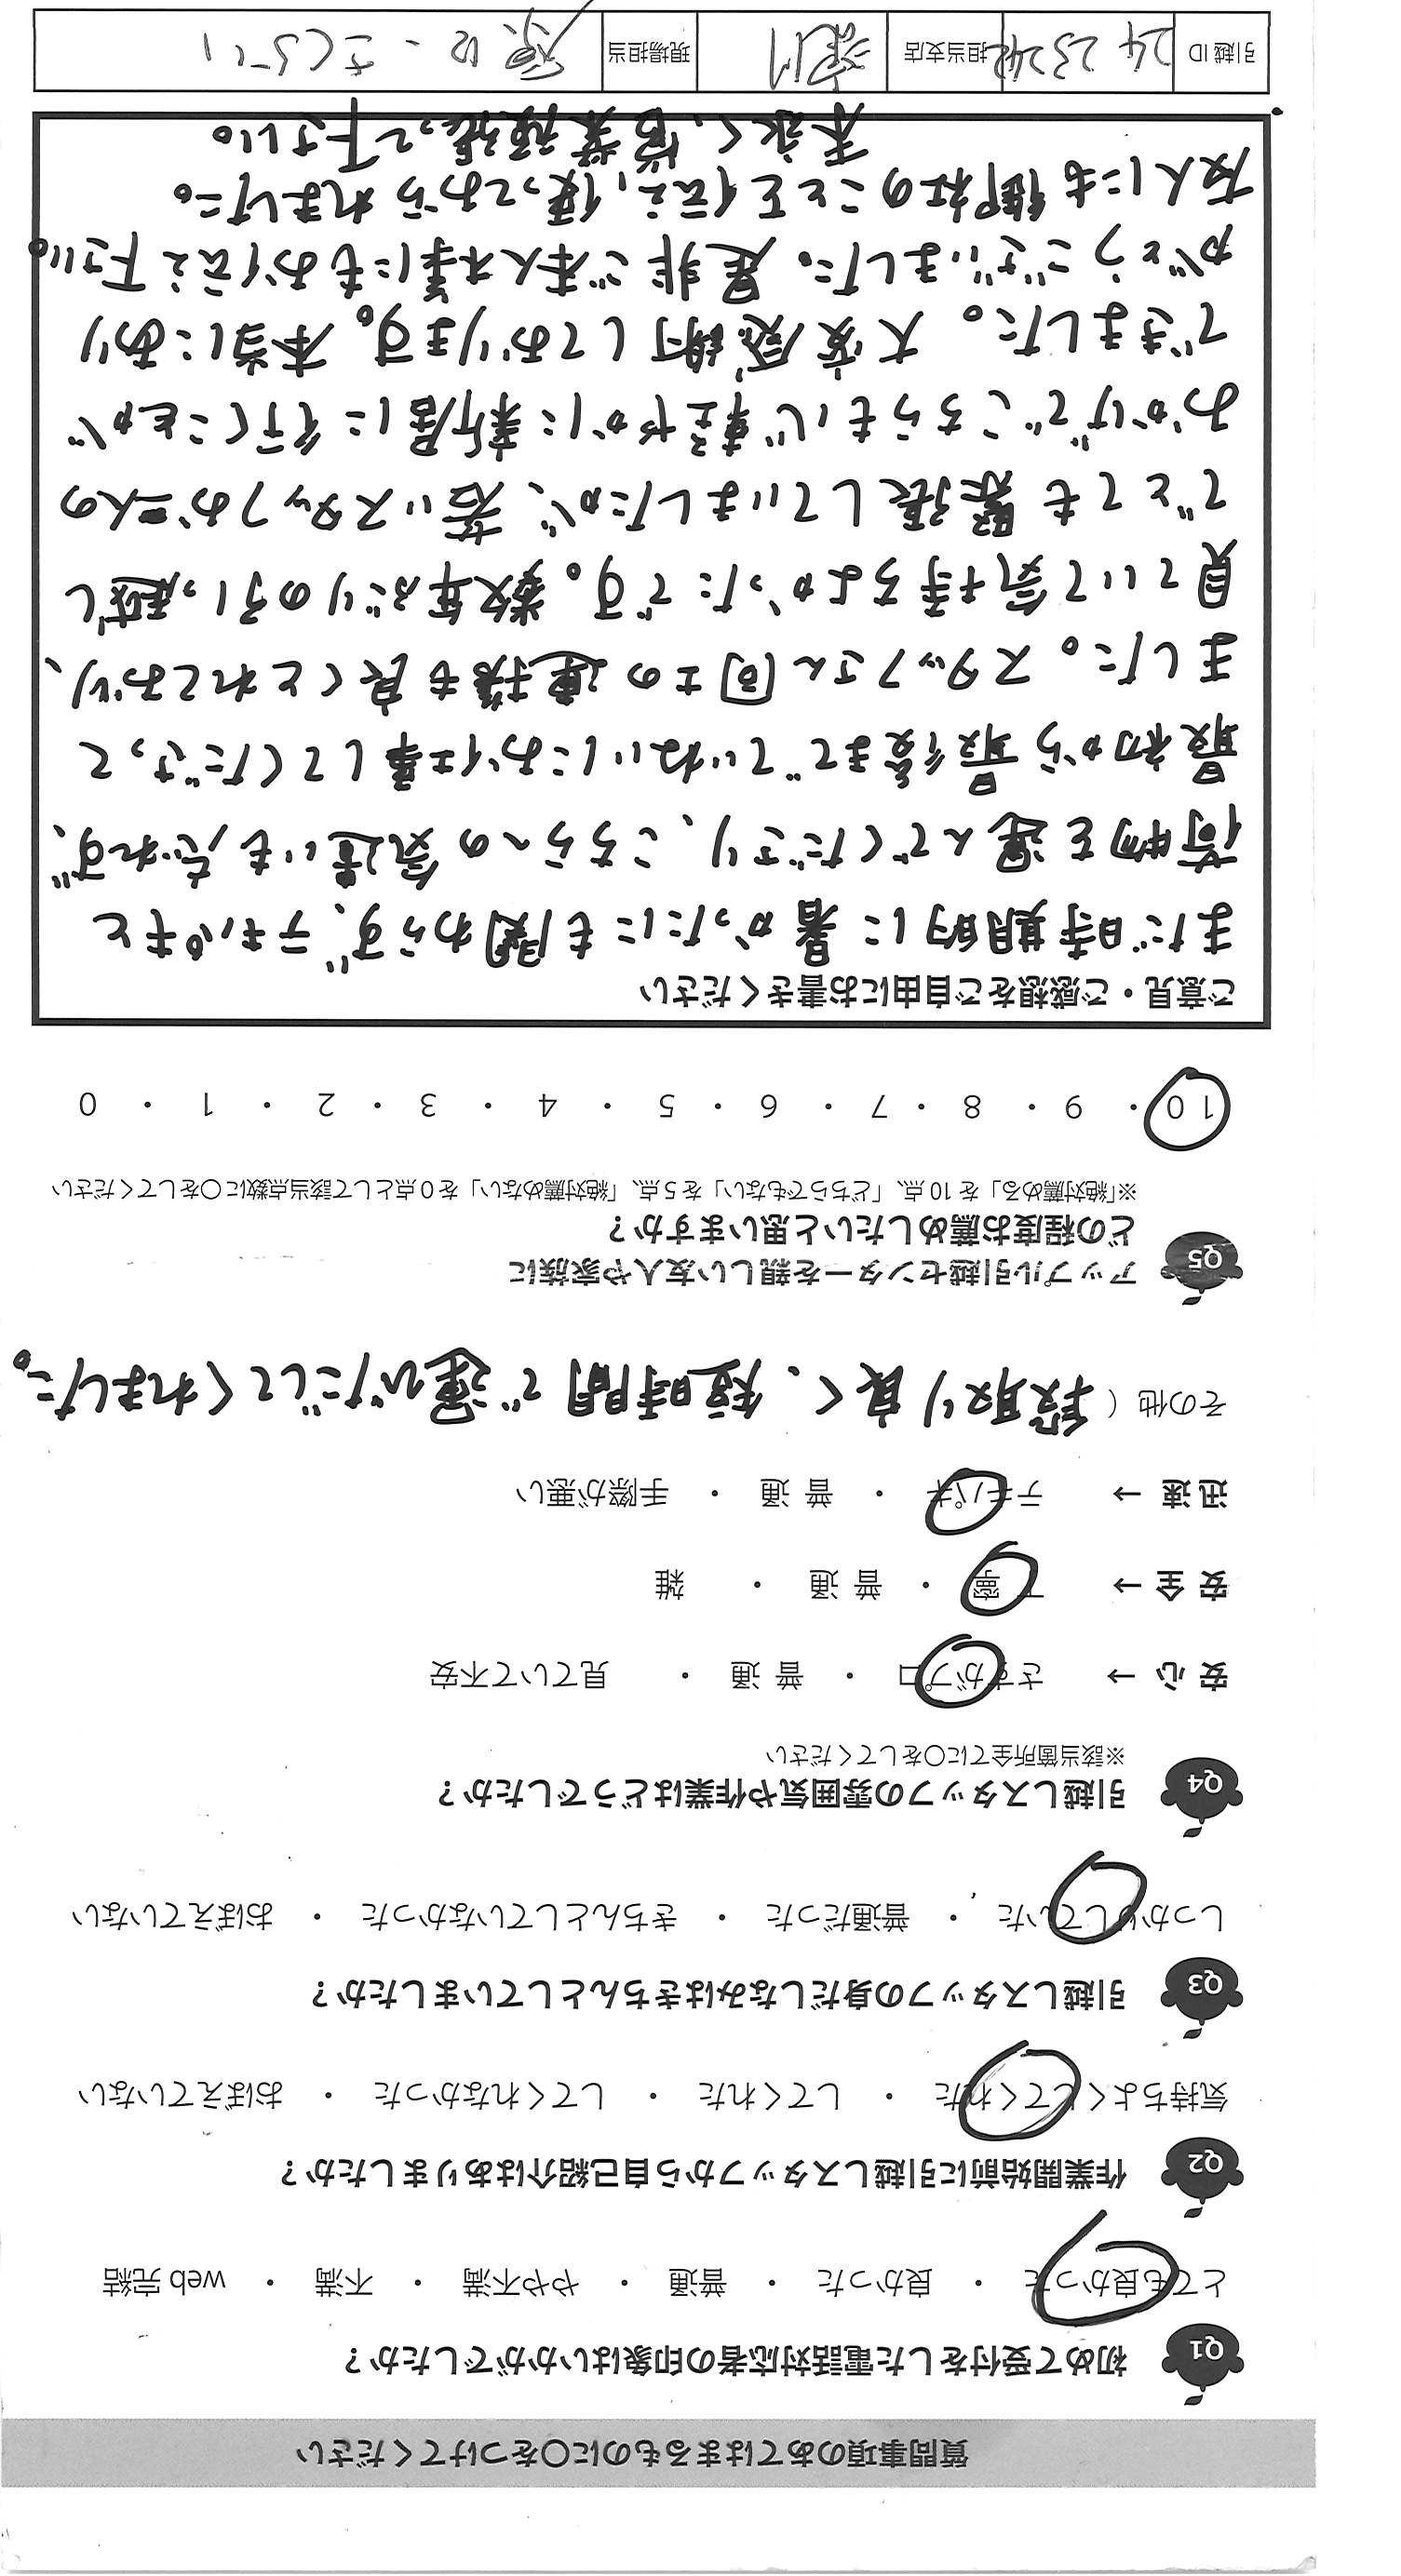 質問事項のあてはまるものに〇をつけてください
Q1 初めて受付をした電話対応者の印象はいかがでしたか？
とても良かった ・ 良かった ・ 普通 ・ やや不満 ・ 不満 ・ web 完結
Q2 作業開始前に引越しスタッフから自己紹介はありましたか？
気持ちよくしてくれた ・ してくれた ・ してくれなかった ・ おぼえていない
Q3 引越しスタッフの身だしなみはきちんとしていましたか？
しっかりしていた ・ 普通だった ・ きちんとしていなかった ・ おぼえていない
Q4 引越しスタッフの雰囲気や作業はどうでしたか？
※該当箇所全てに〇をしてください
安 心 → さすがプロ ・ 普 通 ・ 見ていて不安
安 全 → 丁 寧 ・ 普 通 ・ 雑
迅 速 → テキパキ ・ 普 通 ・ 手際が悪い
その他 ( 段取り良く、短時間で運びだしてくれました。
Q5 アップル引越センターを親しい友人や家族に
どの程度お薦めしたいと思いますか？
※「絶対薦める」を 10 点、「どちらでもない」を 5 点、「絶対薦めない」を 0 点として該当点数に〇をしてください
10 ・ 9 ・ 8 ・ 7 ・ 6 ・ 5 ・ 4 ・ 3 ・ 2 ・ 1 ・ 0
ご意見・ご感想をご自由にお書きください
まだ時期的に暑かったにも関わらず、テキパキと
荷物を運んでくださり、こちらへの気遣いも忘れず、
最初から最後までていねいにお仕事してくださって
ました。スタッフさん同士の連携も良くとれており、
見ていて気持ちよかったです。数年ぶりの引っ越し
でとても緊張していましたが、若いスタッフお二人の
おかげでこちらも心軽やかに新居に行くことが
できました。大変感謝しております。本当にあり
がとうございました。是非ご本人様にもお伝え下さい。
友人にも御社のことを伝え、使っておられました。
末永く、営業頑張って下さい。
引越 ID 242324 担当支店 現場担当